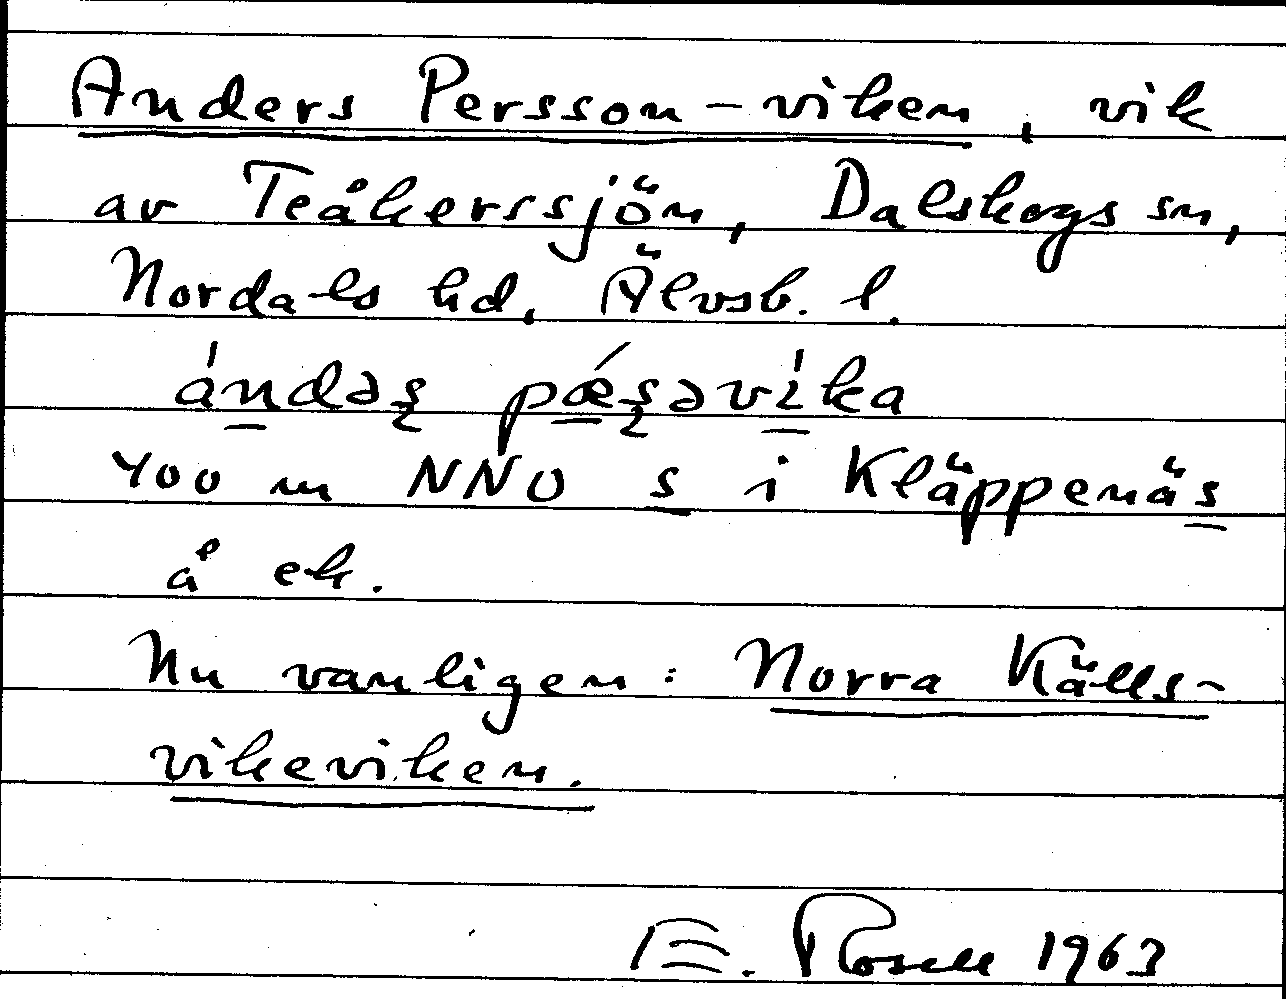 Anders Persson-viken, vik
av Teåkerssjön, Dalskogs sn,
Nordals hd, Älvsb. l.
ándəʂ pǽʂəvíka
400 m NNO s i Kläppenäs
å ek.
Nu vanligen: Norra Källs-
vikeviken.
E. Rosell 1963